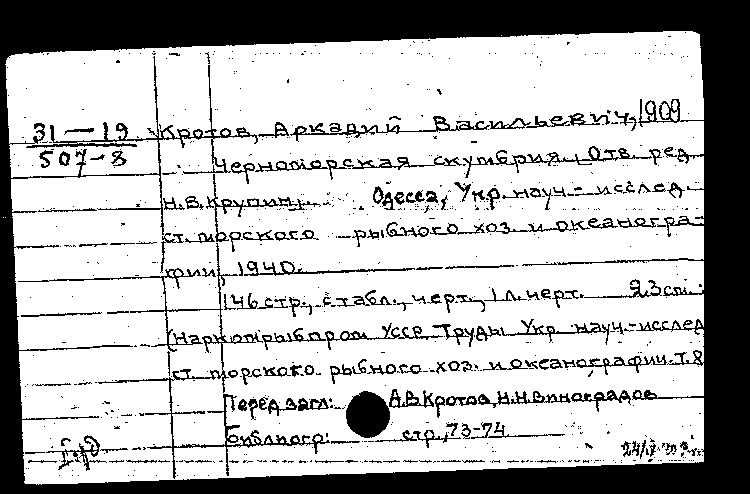 31-19
507-8
Кротов, Аркадий Васильевич, 1909
Черноморская скумбрия. Отв. ред.
Н.В.Крупин. Одесса, Укр. науч.-исслед.
ст. морского рыбного хоз. и океаногра-
фии, 1940.
146 стр., с табл., черт., 1 л. черт. 23 см.
(Наркомрыбпром УССР. Труды Укр. науч.-исслед
ст. морского рыбного хоз. и океанографии. Т. 8
Перед загл: А.В.Кротов, Н.Н.Виноградов
Библиогр: стр. 73-74